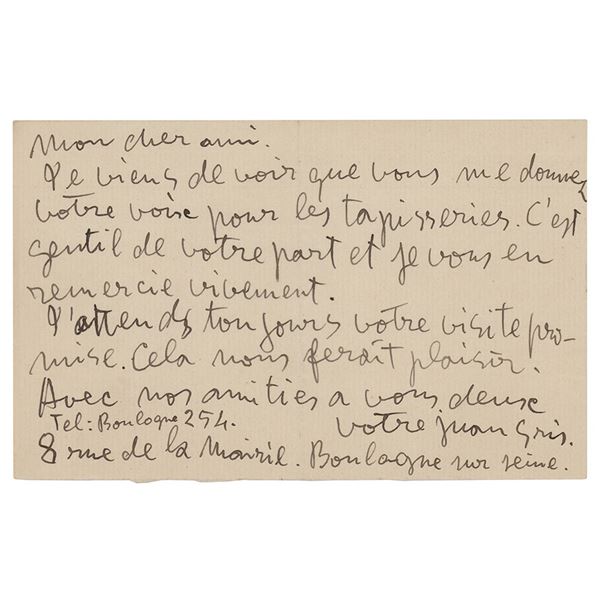 Mon cher ami.
Je viens de voir que vous me donnez
votre voix pour les tapisseries. C'est
gentil de votre part et je vous en
remercie vivement.
J'attends toujours votre visite pro-
mise. Cela nous ferait plaisir.
Avec nos amities a vous deux
Tel: Boulogne 254.
votre Juan Gris.
8 rue de la Mairie. Boulogne sur seine.